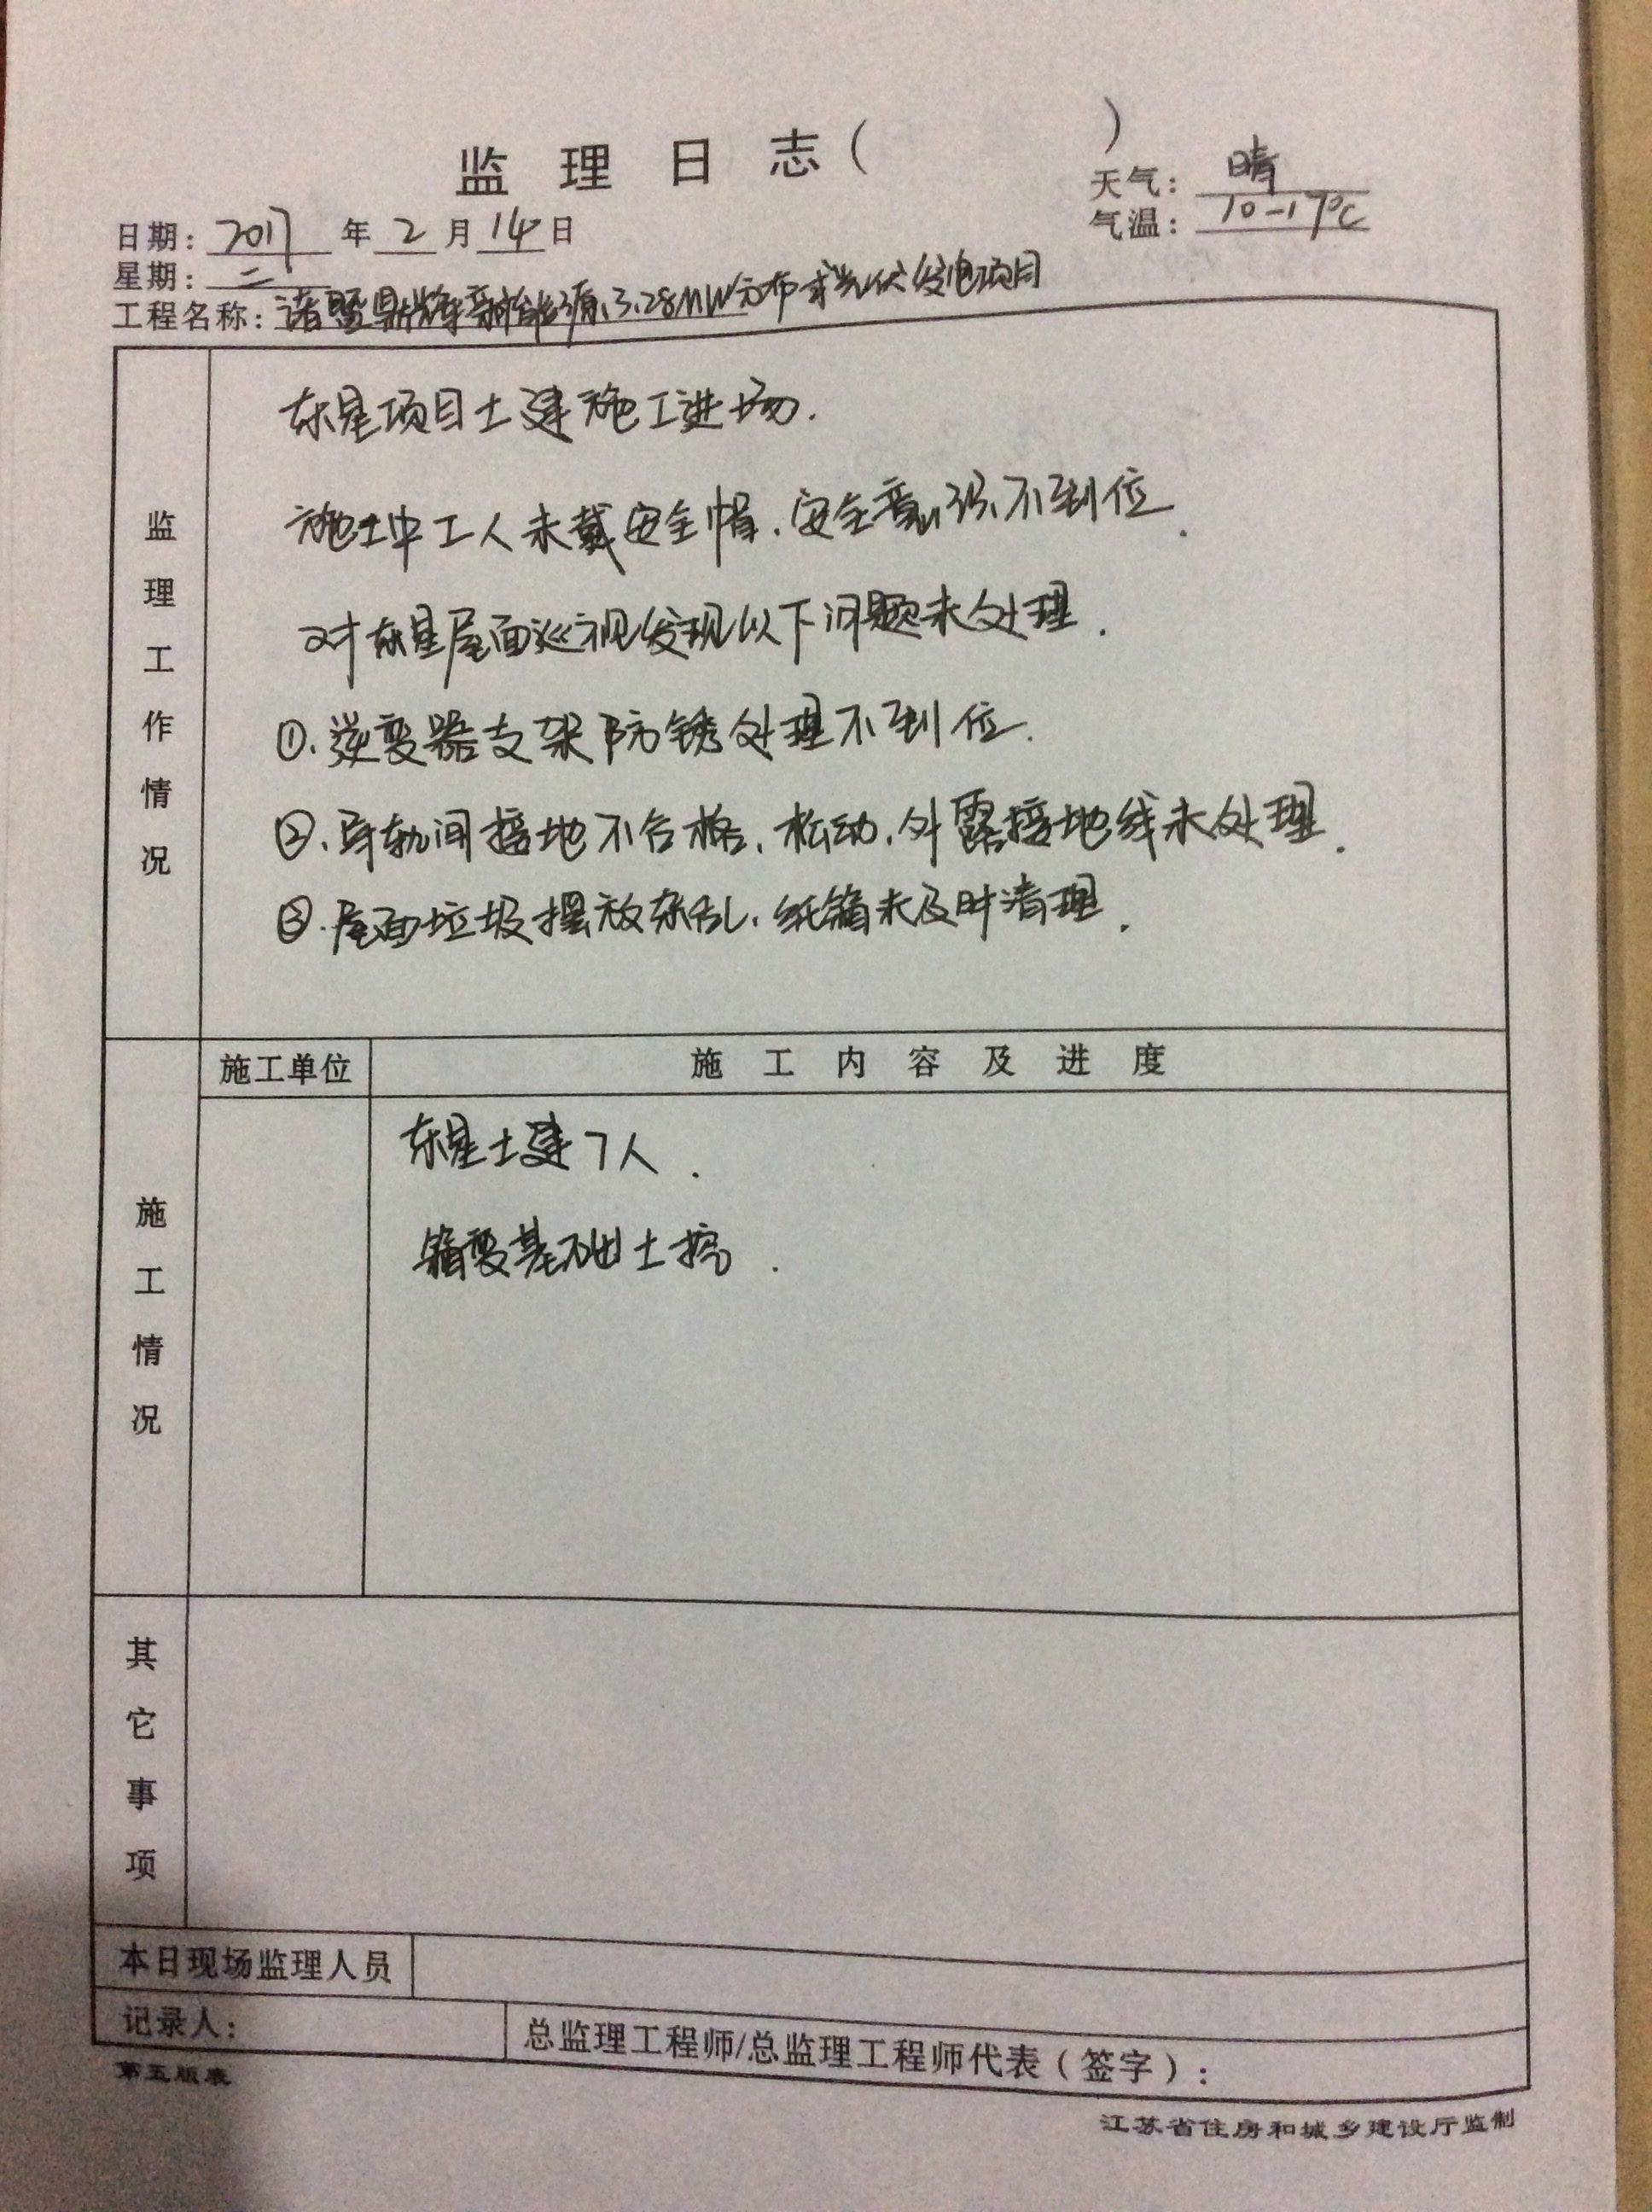 监理日志（ ）
天气：晴
气温：10-17℃
日期：2017年2月14日
星期：二
工程名称：诸暨鼎辉新能源3.28MW分布式光伏发电项目
监理工作情况
东星项目土建施工进场.
施工中工人未戴安全帽.安全意识不到位.
对东星屋面巡视发现以下问题未处理.
①.逆变器支架防锈处理不到位.
②.导轨间接地不合格、松动、外露接地线未处理.
③.屋面垃圾摆放杂乱、纸箱未及时清理.
施工单位 施工内容及进度
施工情况
东星土建7人.
箱变基础土挖.
其它事项
本日现场监理人员
记录人： 总监理工程师/总监理工程师代表（签字）：
第五版表
江苏省住房和城乡建设厅监制